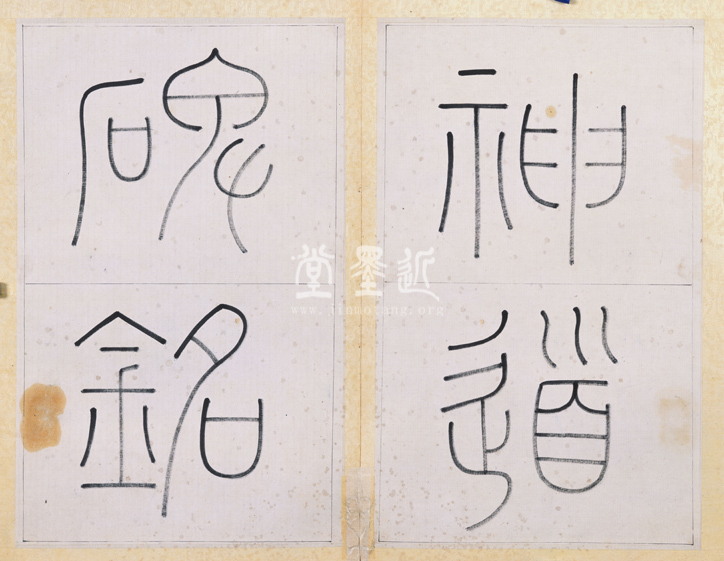 神道
碑銘
近墨堂
www.jinmotang.org